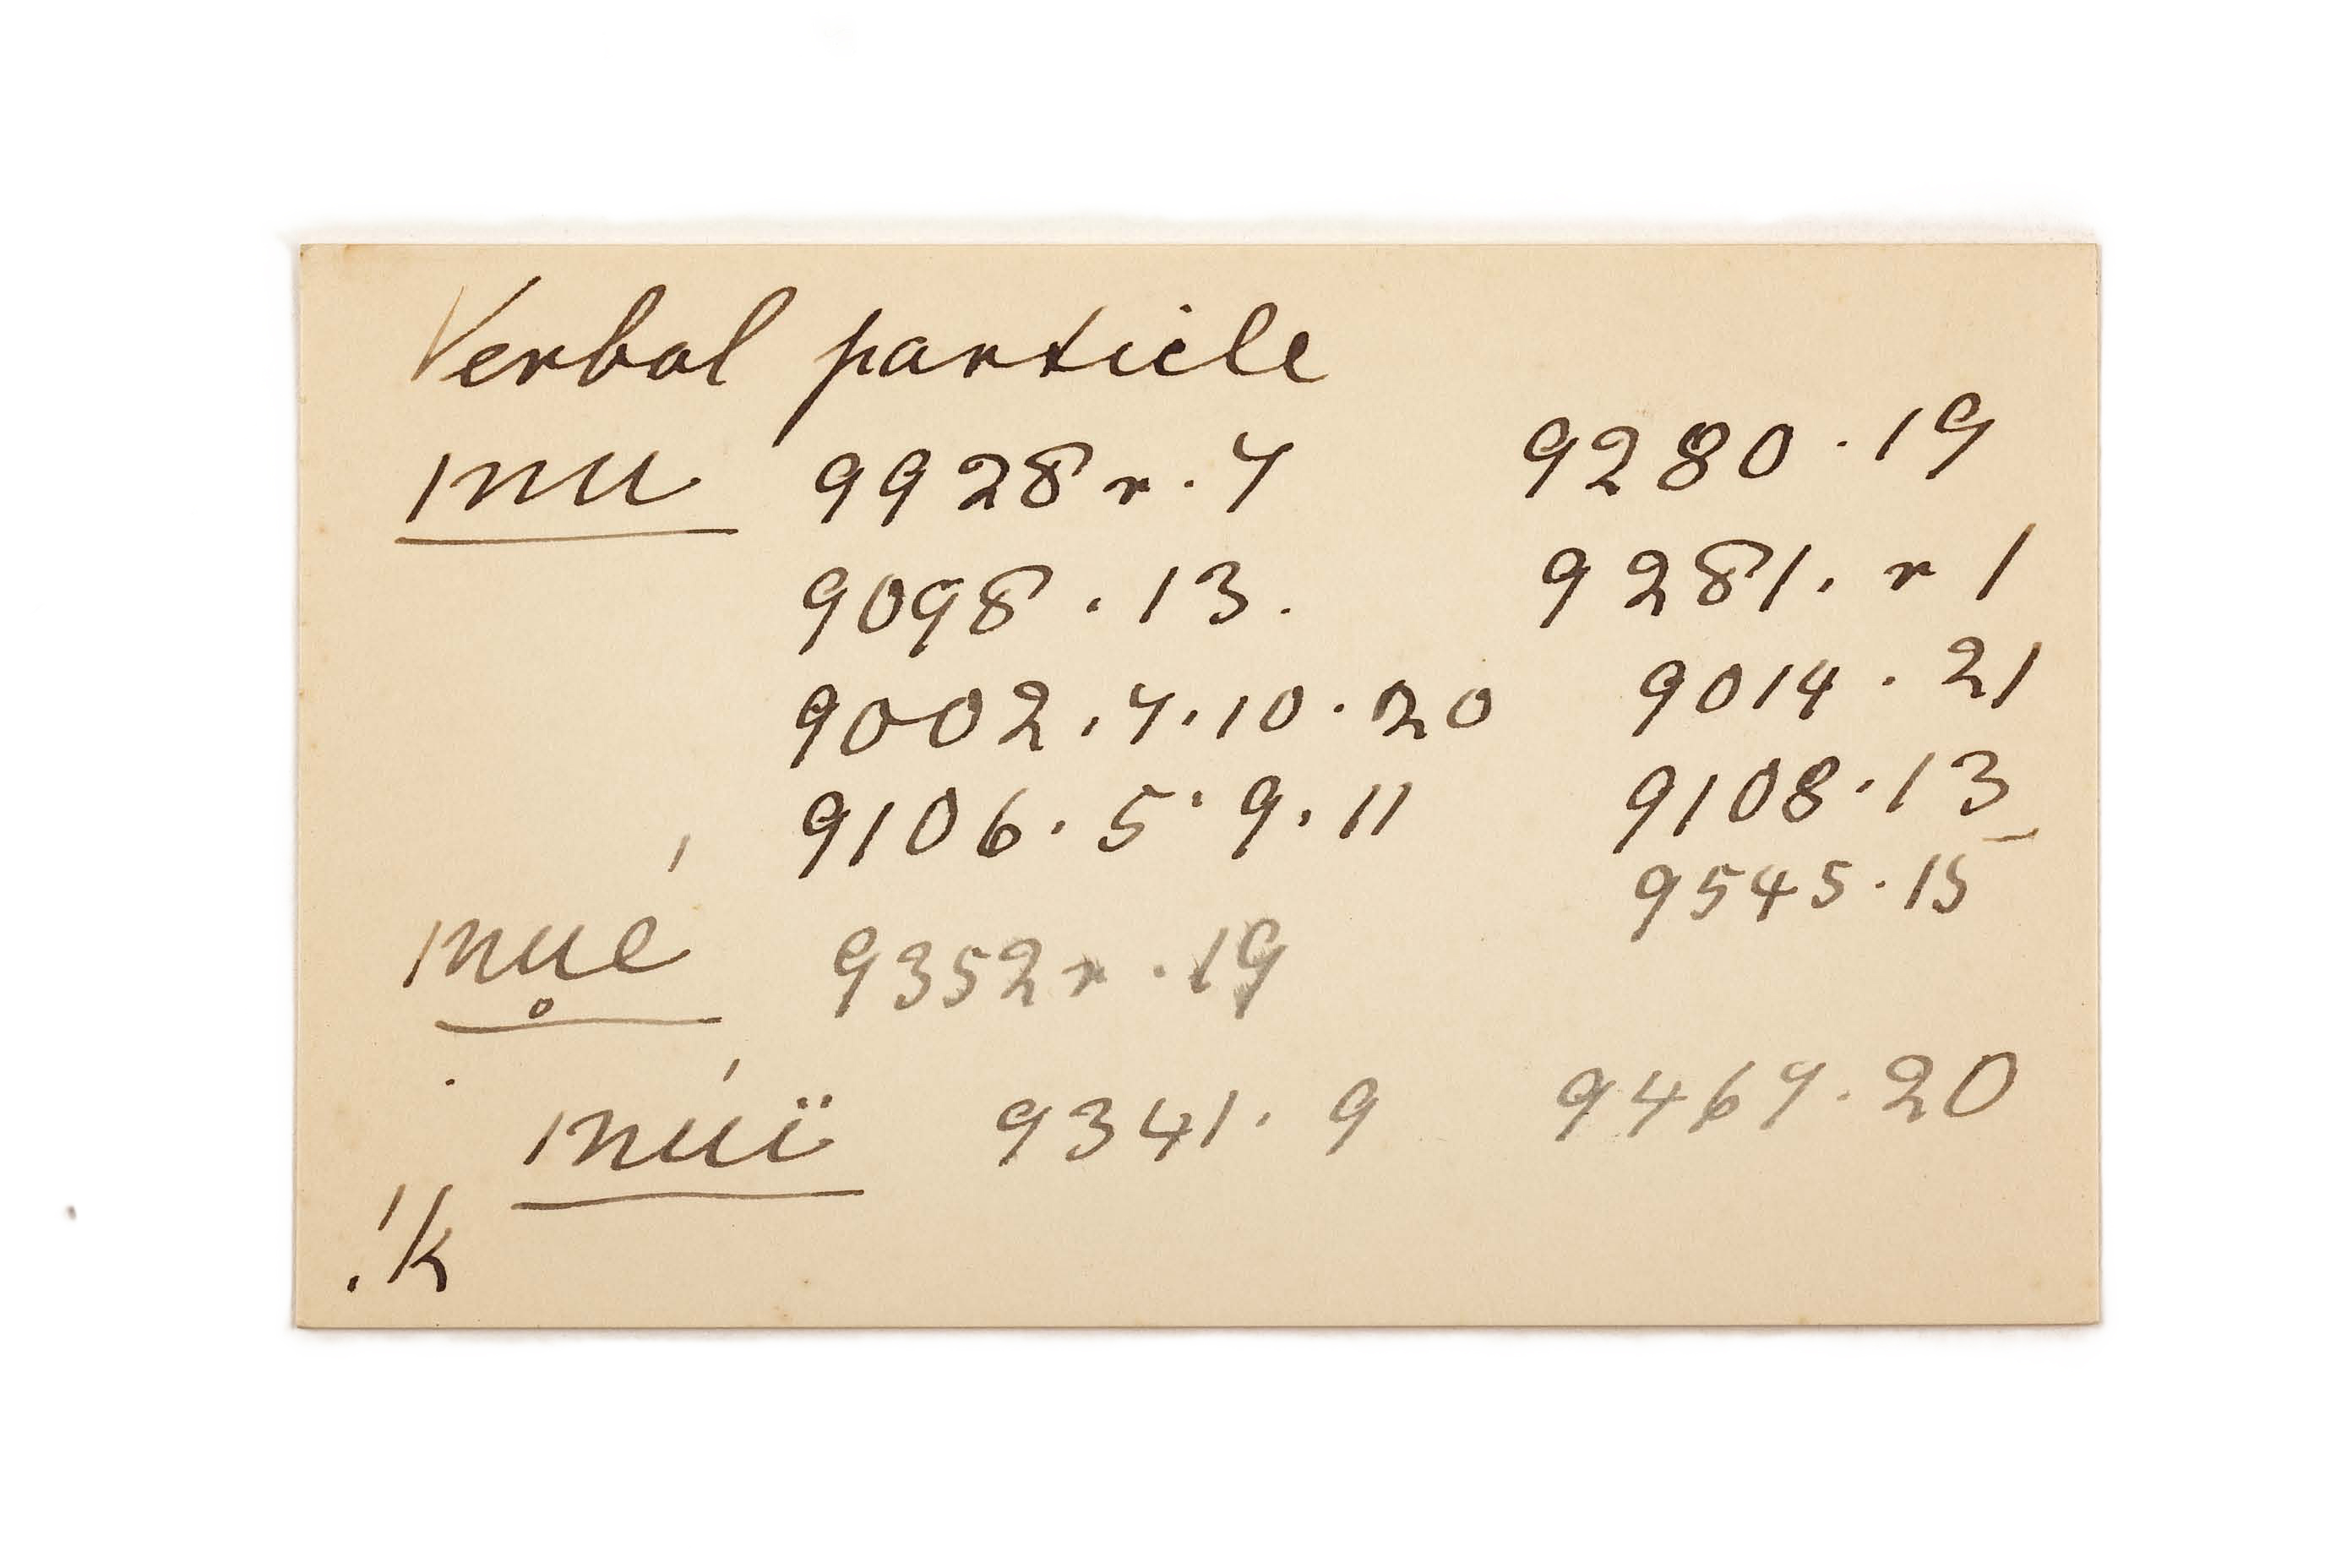 Verbal particle
ınu 9928 r. 7 9280. 19
9098. 13. 9281. r 1
9002. 7. 10. 20 9014. 21
9106. 5. 9. 11 9108. 13
9545. 15
ınu̥é 9352 r. 19
ınúï 9341. 9 9467. 20
!k